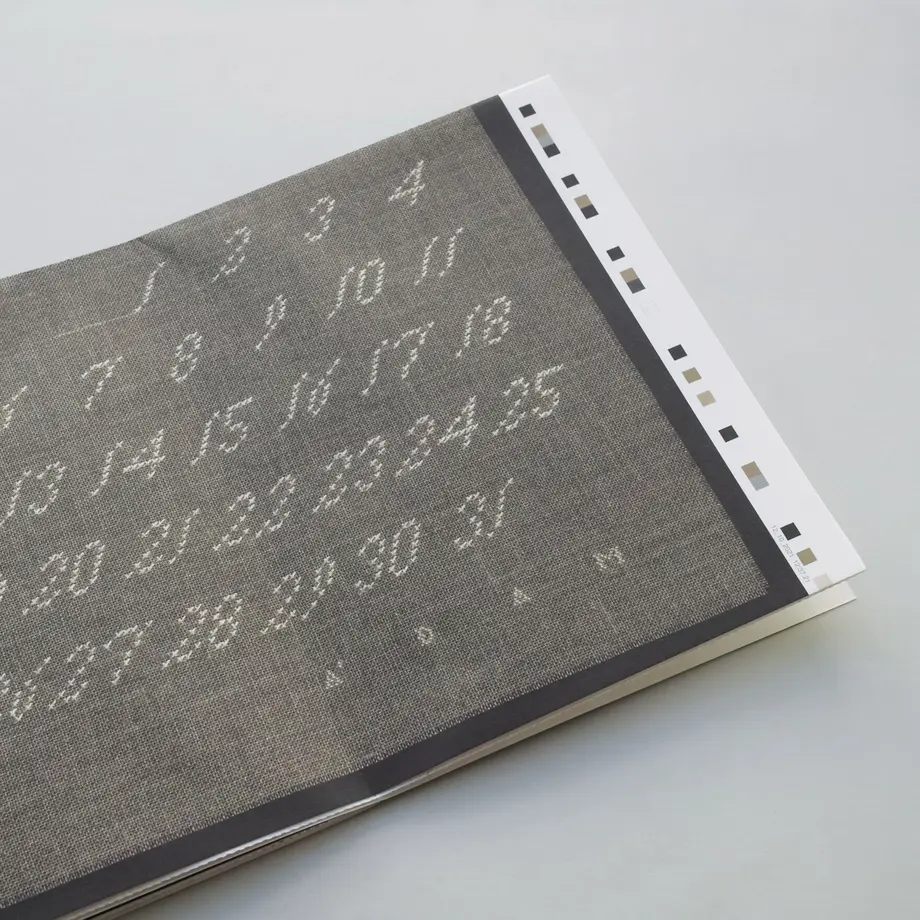 1 2 3 4
7 8 9 10 11
13 14 15 16 17 18
20 21 22 23 24 25
26 27 28 29 30 31
A
A M